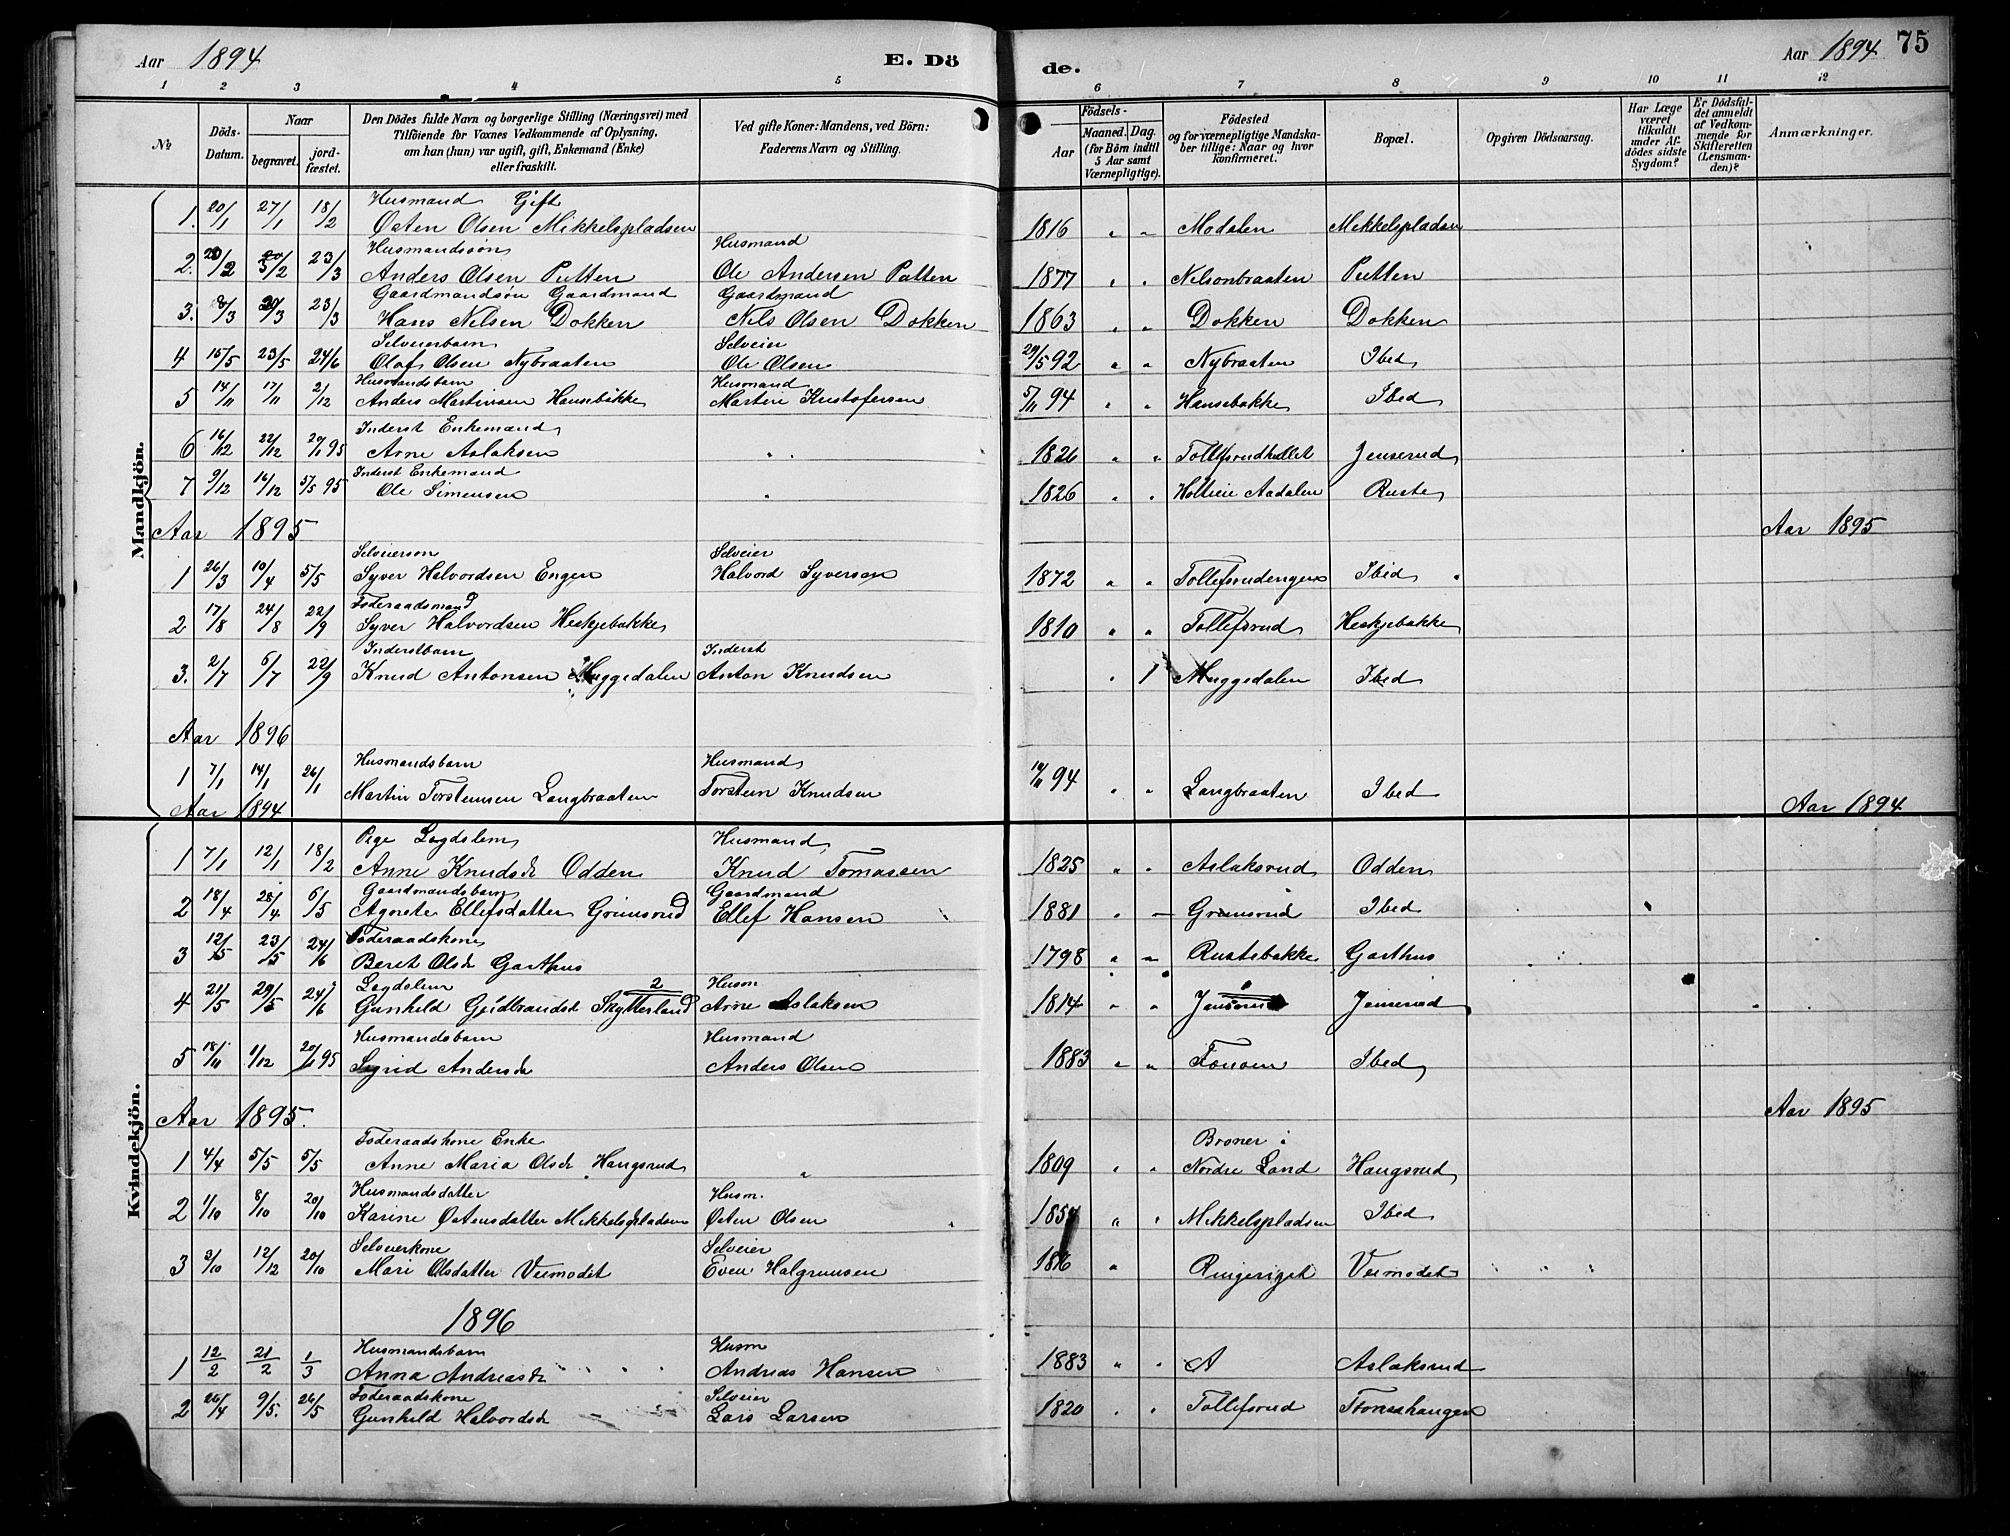 Aar 1894 E. Dö de. Aar 1894 75
1 2 3 4 5 6 7 8 9 10 11 12
No
Döds-Datum.
Naar
begravet.
jord-fæstet.
Den Dödes fulde Navn og borgerlige Stilling (Næringsvei) med
Tilföiende for Voxnes Vedkommende af Oplysning,
om han (hun) var ugift, gift, Enkemand (Enke)
eller fraskilt.
Ved gifte Koner: Mandens, ved Börn:
Faderens Navn og Stilling.
Födsels-
Aar
Maaned. Dag.
(for Börn indtil
5 Aar samt
Værnepligtige).
Födested
og for værnepligtige Mandska-
ber tillige: Naar og hvor
konfirmeret.
Bopæl.
Opgiven Dödsaarsag.
Har Læge
været
tilkaldt
under Af-
dödes sidste
Sygdom?
Er Dödsfal-
det anmeldt
af Vedkom-
mende for
Skifteretten
(Lensman-
den)?
Anmærkninger.
Mandkjön.
Husmand Gift
1. 20/1 27/1 18/2 Østen Olsen Mikkelspladsen 1816 " " Modalen Mikkelspladsen
Husmandssøn Husmand
2. /2 /2 23/3 Anders Olsen Putten Ole Andersen Putten 1877 " " Nilsonbraaten Putten
Gaardmandsøn Gaardmand Gaardmand
3. 8/3 /3 23/3 Hans Nilsen Dokken Nils Olsen Dokken 1863 " " Dokken Dokken
Selveierbarn Selveier
4 15/5 23/5 24/6 Olaf Olsen Nybraaten Ole Olsen 29/5 92 " " Nybraaten Ibed
Husmandsbarn Husmand
5 14/11 17/11 2/12 Anders Martinsen Hansebakke Martin Kristofersen 5/11 94 " " Hansebakke Ibed
Inderst Enkemand
6 16/12 22/12 20/1 95 Arne Aslaksen " 1826 " " Tollefsrudhullet Jenserud
Inderst Enkemand
7 9/12 16/12 5/5 95 Ole Simensen " 1826 " " Holteie Aadalen Ruste
Aar 1895 Aar 1895
Selveiersøn Selveier
1 26/3 10/4 5/5 Syver Halvordsen Engen Halvord Syversen 1872 " " Tollefsrudengen Ibid
Foderaadsmand
2 17/8 24/8 22/9 Syver Halvordsen Heskjebakke 1810 " " Tollefsrud Heskjebakke
Inderstbarn Inderst
3. 2/7 6/7 22/9 Knud Antonsen Muggedalen Anton Knudsen " 1 Muggedalen Ibed
Aar 1896
Husmandsbarn Husmand
1 7/1 14/1 26/1 Martin Torstensen Langbraaten Torsten Knudsen 94 " " Langbraaten Ibed
Aar 1894 Aar 1894
Kvindekjön.
Pige Legdslem Husmand
1 7/1 12/1 18/2 Anne Knudsdr Odden Knud Tomassen 1825 " " Aslaksrud Odden
Gaardmandsbarn Gaardmand
2 18/4 28/4 6/5 Agnete Ellefsdatter Grimsrud Ellef Hansen 1881 " " Grimsrud Ibed
Foderaadskone
3 12/5 23/5 24/6 Beret Olsdr Garthus 1798 " " Rustebakke Garthus
Legdslem 2 Husm
4 21/5 29/5 24/6 Gunhild Gudbrandsd Skytterland Arne Aslaksen 1814 " " Jenserud Jenserud
Husmandsbarn Husmand
5 18/11 1/12 20/1 95 Sigrid Andersdr Anders Olsen 1883 " " Ibed
Aar 1895. Aar 1895
Foderaadskone Enke Broner i
1 4/4 5/5 5/5 Anne Maria Olsdr Haugsrud " 1809 " " Nordre Land Haugsrud
Husmandsdatter Husm.
2 1/10 8/10 20/10 Karine Østensdatter Mikkelspladsen Østen Olsen " " Mikkelspladsen Ibed
Selveierkone Selveier
3 3/10 12/12 20/10 Mari Olsdatter Veimodet Even Halgrimsen 1816 " Ringeriget Veimodet
1896
Husmandsbarn Husm
1 12/2 21/2 1/3 Anna Andreasdr Andreas Hansen 1883 " " A Aslaksrud
Foderaadskone Selveier
2 26/4 9/5. 26/5 Gunhild Halvordsdr Lars Larsen 1820 " " Tollefsrud